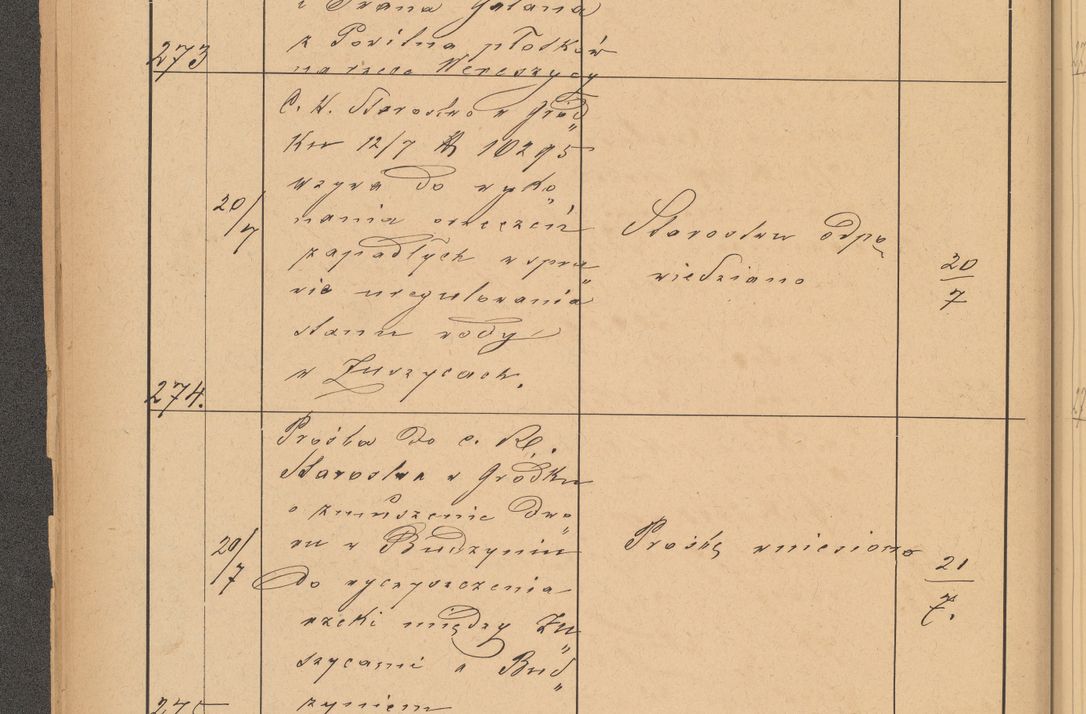 i Iwana Galana
z Powitna płotków
273
na rzece Wereszycy
C. K. Starostwo w Gród„
ku 12/7 № 10295
wzywa do wyko„
20/7
nania orzeczeń
zapadłych w spra„
wie uregulowania
stanu wody
w Zuszycach.
Starostwu odpo„
wiedziano
20/7
274.
Prośba do c. K.
Starostwa w Gródku
o zmuszenie Dwo„
ru w Budzyniu
20/7
do wyczyszczenia
rzeki między Zu„
szycami a Bud„
zyniem
Prośbę wniesiono
21/7.
275